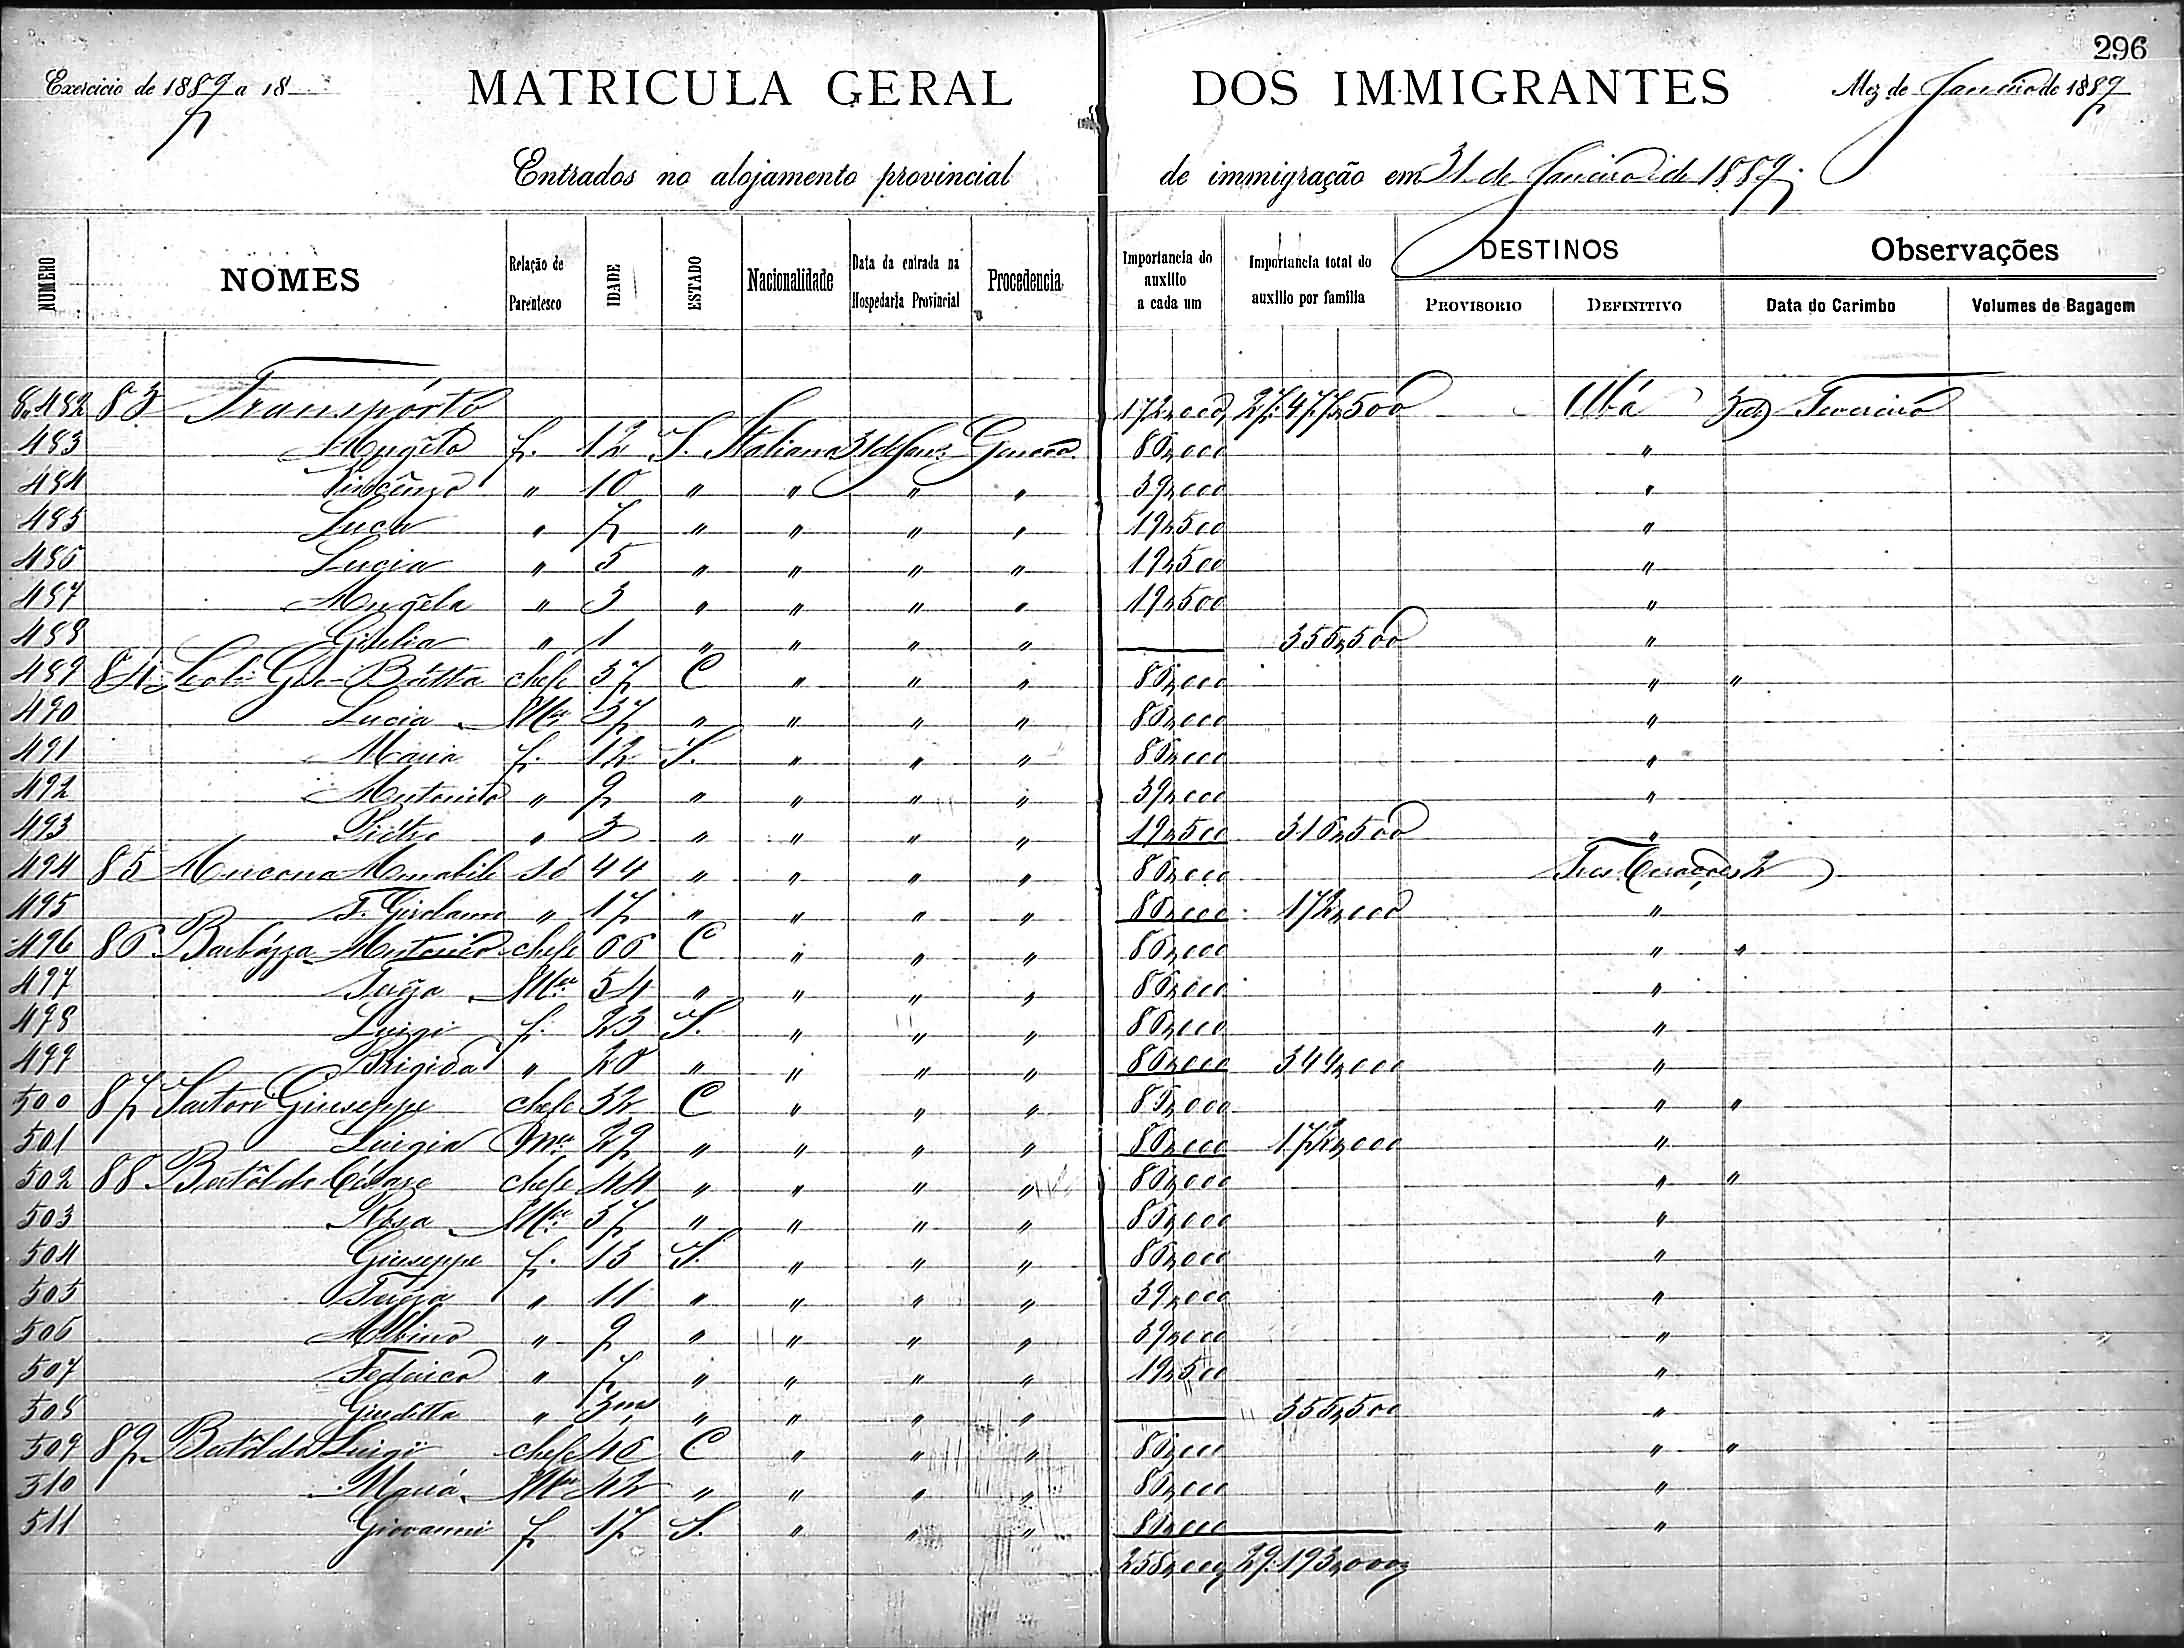 296
Exercicio de 1889 a 18
MATRICULA GERAL DOS IMMIGRANTES
Mez de Janeiro de 1889
Entrados no alojamento provincial de immigração em 31 de Janeiro de 1889
NUMERO NOMES Relação de Parentesco IDADE ESTADO Nacionalidade Data da entrada na Hospedaria Provincial Procedencia Importancia do auxilio a cada um Importancia total do auxilio por familia DESTINOS PROVISORIO DEFINITIVO Observações Data do Carimbo Volumes de Bagagem
8.482 83 Transpórto 172,000 27:477,500 Ubá 3 de Fevereiro
483 Angelo f. 12 S. Italiana 31 de Janº Genova 86,000 "
484 Vincenzo " 10 " " " " 39,000 "
485 Luca " 7 " " " " 19,500 "
486 Lucia " 5 " " " " 19,500 "
487 Angela " 3 " " " " 19,500 "
488 Giulia " 1 " " " " 355,500 "
489 84 Gio Batta chefe 37 C " " " 86,000 " "
490 Lucia Mer 37 " " " " 86,000 "
491 Maria f. 12 S. " " " 86,000 "
492 Antonio " 9 " " " " 39,000 "
493 Pietro " 3 " " " " 19,500 316,500 "
494 85 Amabile só 44 " " " " 86,000 Tres Corações
495 F. Girolamo " 17 " " " " 86,000 172,000 "
496 86 Barbazza Antonio chefe 66 C " " " 86,000 " "
497 Mer 54 " " " " 86,000 "
498 Luigi f. 23 S. " " " 86,000 "
499 Brigida " 20 " " " " 86,000 344,000 "
500 87 Sartori Giuseppe chefe 32 C " " " 86,000 " "
501 Luigia Mer 29 " " " " 86,000 172,000 "
502 88 Bertoldo chefe 44 " " " " 86,000 " "
503 Rosa Mer 37 " " " " 86,000 "
504 Giuseppe f. 15 S. " " " 86,000 "
505 " 11 " " " " 39,000 "
506 Albino " 9 " " " " 39,000 "
507 Federico " 7 " " " " 19,500 "
508 Giuditta " 3 m " " " " 355,500 "
509 89 Bertoldo Luigi chefe 46 C " " " 86,000 " "
510 Maria Mer 42 " " " " 86,000 "
511 Giovanni f 17 S. " " " 86,000 "
258,000 29:193,000